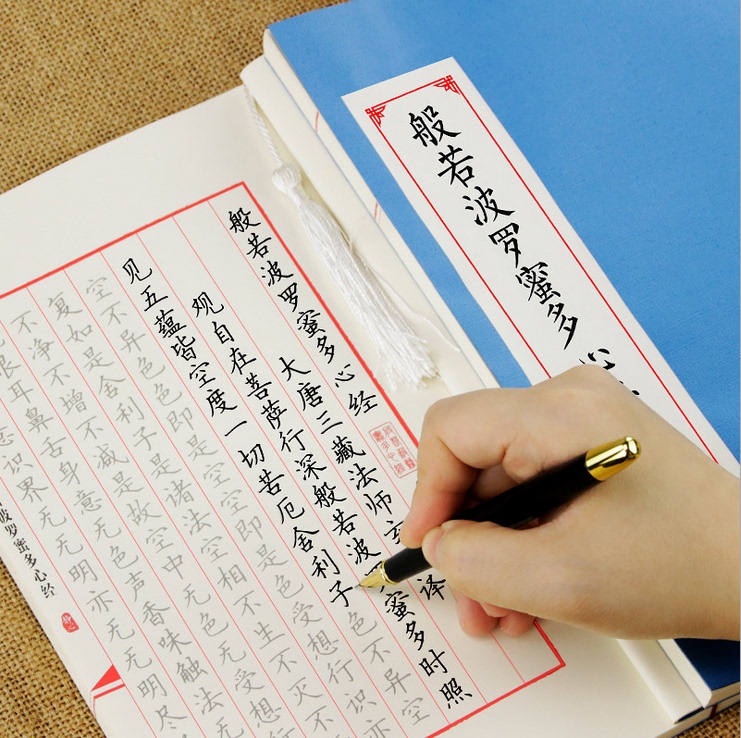 般若波罗蜜多心
般若波罗蜜多心经
大唐三藏法师玄译
观自在菩萨行深般若波蜜多时照
见五蕴皆空度一切苦厄舍利子色不异空
空不异色色即是空空即是色受想行识亦
复如是舍利子是诸法空相不生不灭不
不净不增不减是故空中无色无受想行
眼耳鼻舌身意无色声香味触法无
意识界无无明亦无无明尽
波罗蜜多心经
静心